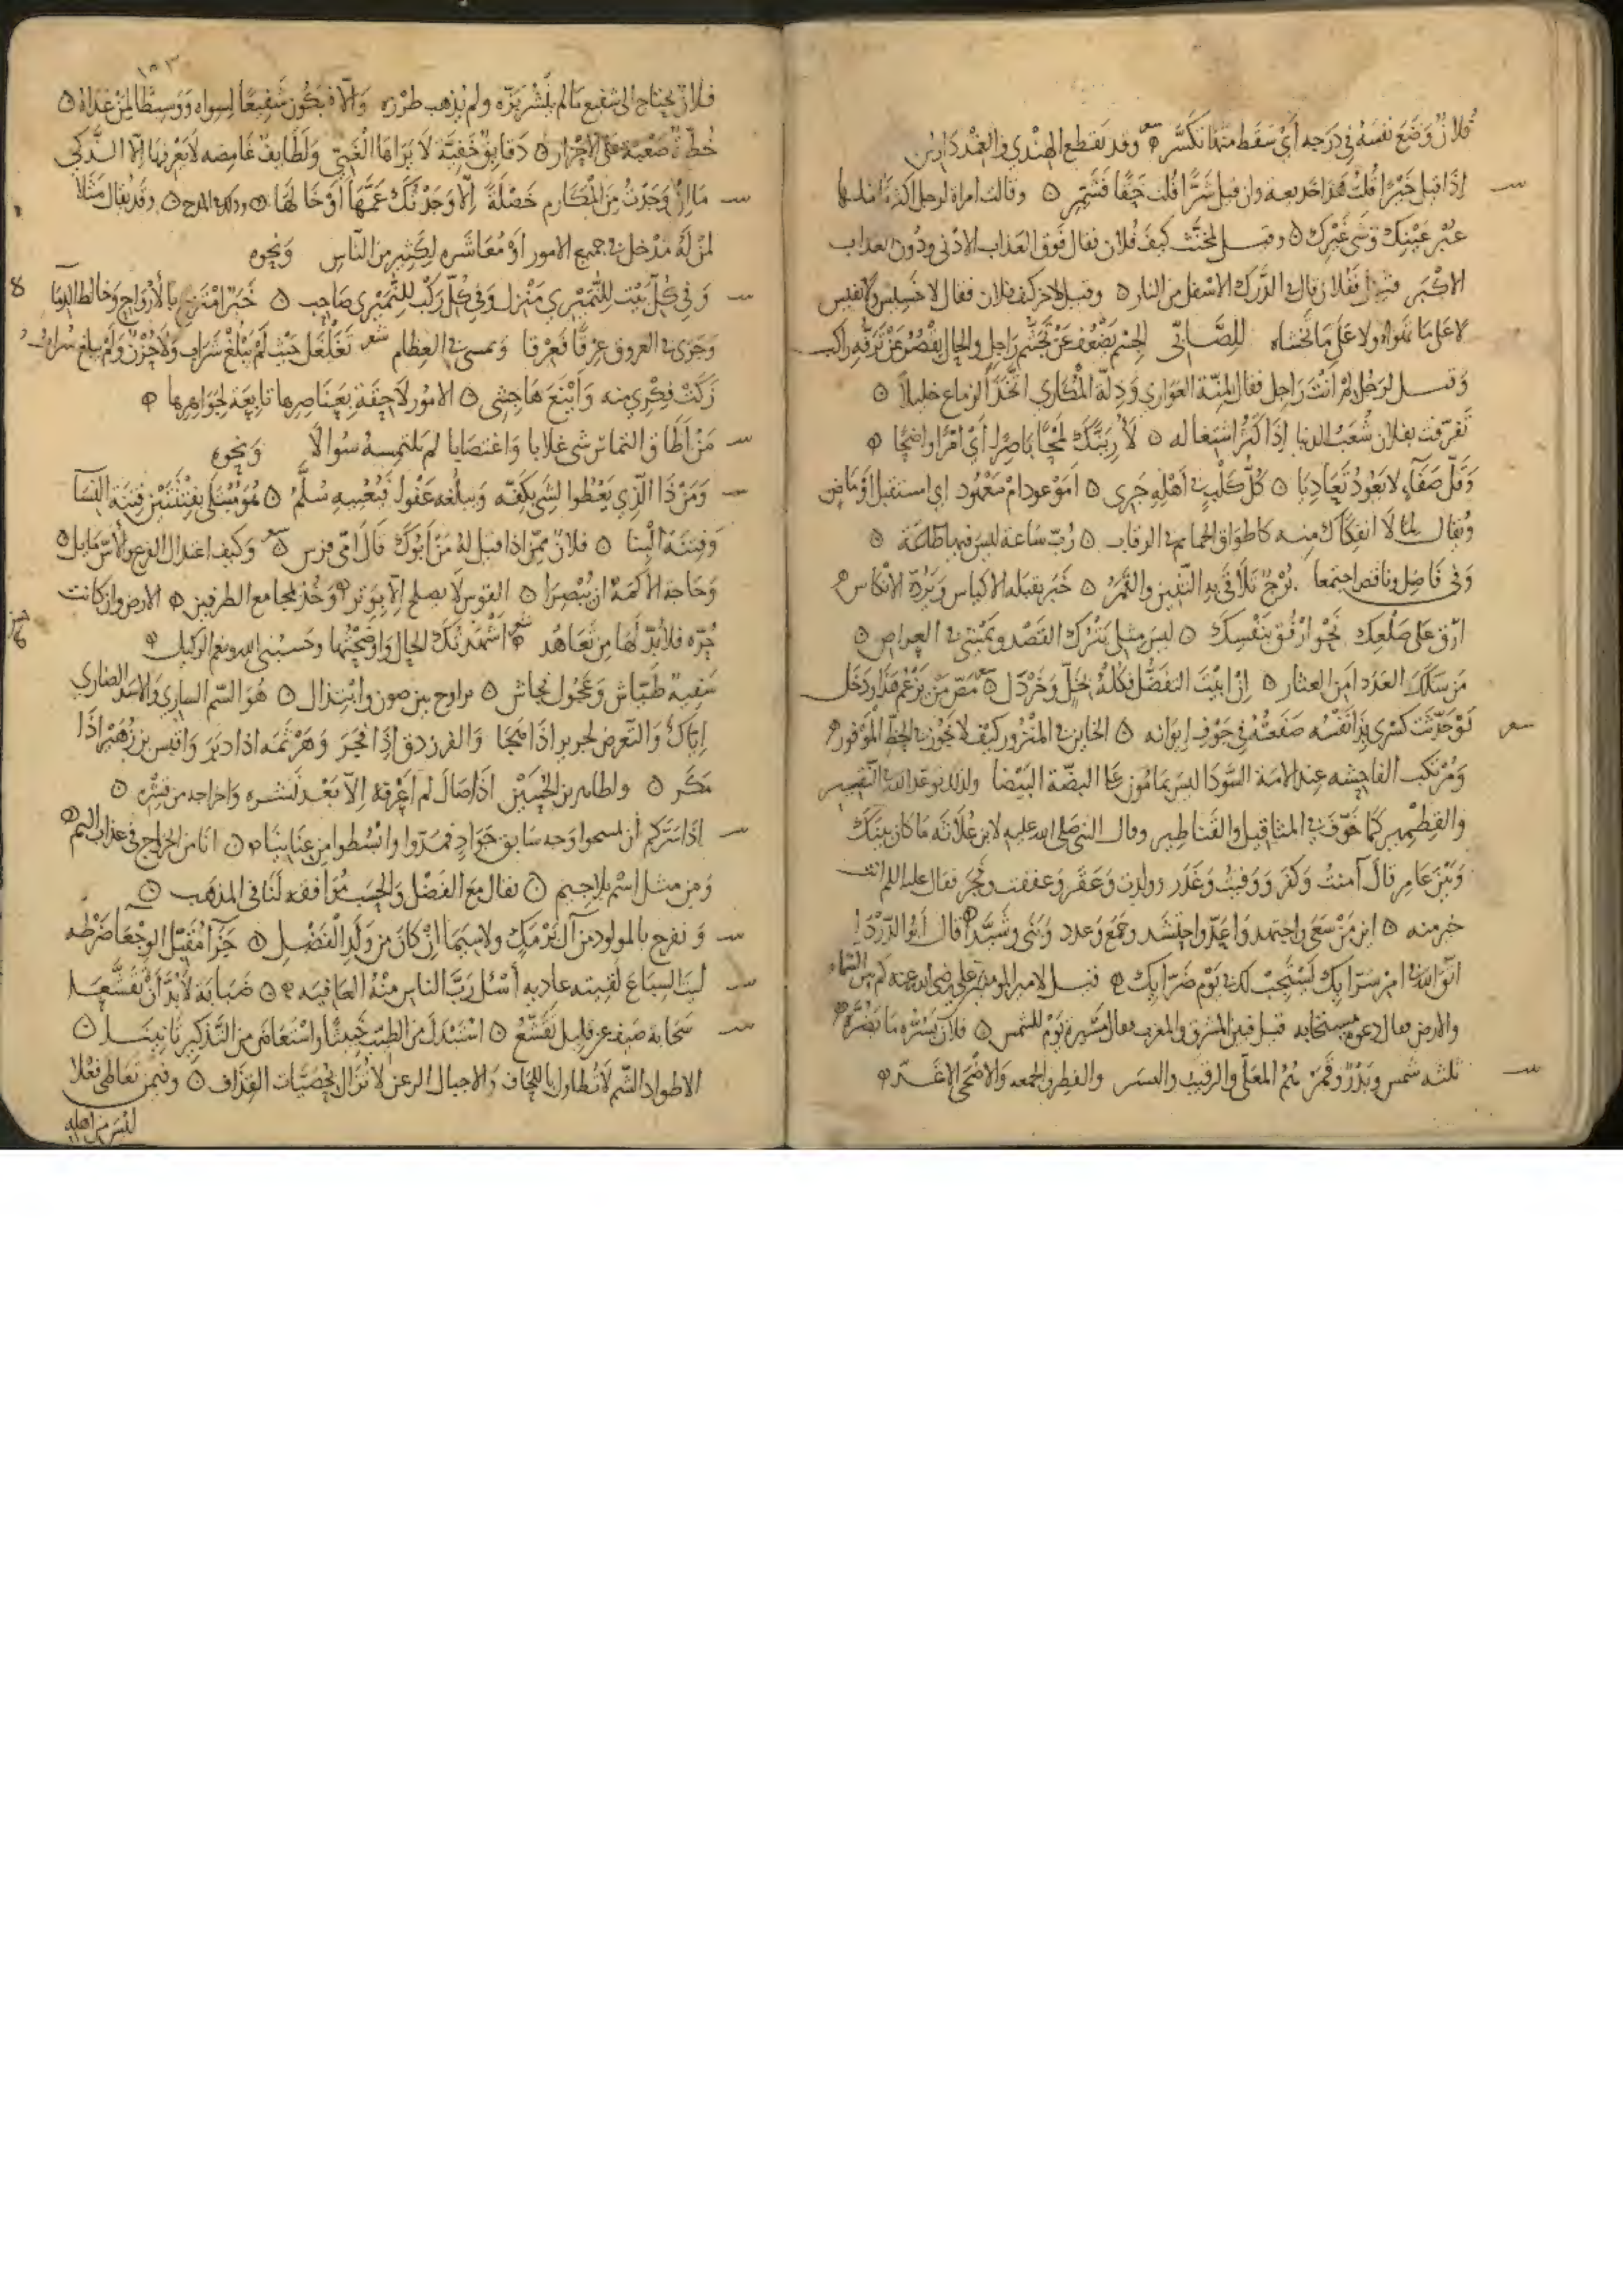 فلان وضع نفسه في درجه أي سقط منها تكسر وقد تقطع الهندي والغند دادين
إذا قيل خيرا قلت هذا خديعة وان قيل شرا قلت حقا فتشمر وقالت امراة لرجل
عبر عينك وشى غيرك وقيل لمخنث كيف فلان فقال فوق العذاب الادنى ودون العذاب
الاكبر قيل ففلان قال في الدرك الاسفل من النار وقيل لاخر كيف فلان فقال لا خسيس ولا نفيس
لا على ما تهواه ولا على ما تخشاه للصابي الجسم يضعف عن تجشم راجل والحال يقصر عن ترفه راكب
وقيل لرجل لم انت راجل فقال لمنة العواري وذلة المكاري اتخذ الزماع خليلا
تفرقت بفلان شعب الدنيا اذا كثر اشتغاله لأرينك لمحا باصرا أي امرا واضحا
وقل صفاء لا يعود تعاديا كل كلب في أهله جرى أموعود ام معهود اي استقبل او ماض
ويقال لما لا انفكاك منه كاطواق الحمايم في الرقاب رب ساعة ليس فيها طاعة
وفي فاضل وناقص اجتمعا برج تلاقى به التنين والقمر خبر يقبله الاكياس ويرده الانكاس
ارق على ظلعك نحو ارفق بنفسك ليس مثلي يترك القصد ويمشي في العراض
من سلك العدد امن العثار إن ابيت التفضل فكله بخل وخردل
لو حدثت كسرى بذا نفسه صفعته في جوف ايوانه الخاين في المنزور كيف لا يخون في الحظ الموفور
ومرتكب الفاحشه عند الامة السودا ليس بمامون على البضة البيضا ولذلك توعد الله في النقير
والقطمير كما خوف في المثاقيل والقناطير وقال النبي صلى الله عليه لابن علاثه ما كان بينك
وبين عامر قال آمنت وكفر ووفيت وغدر وولدت وعقر وعففت وفجر فقال عليه السلم انت
خير منه اين من سعى واجتهد واعد واحتشد وجمع وعدد وبنى وشيد قال ابو الدردا
اتق الله في امر سرايك يستجب لك في يوم ضرايك قيل لامير المومنين علي رضي الله عنه كم بين السماء
والارض فقال دعوة مستجابه قيل فبين المشرق والمغرب فقال مسيرة يوم للشمس فلان يسره ما يضره
ثلثه شمس وبدر وقمر ثم المعلى والرقيب والفطر والجمعه والاضحى الاغر
١٥٣
فلان يحتاج الى شفيع مالم ينشر بزه ولم يذهب طرزه والا فيكون شفيعا لسواه ووسيطا لمن عداه
خطة صعبة على الاحرار دقايق خفية لا يراها الغبي ولطايف غامضه لا يعرفها الا الذكي
ما إن وجدت من المكارم خصلة إلا وجدتك عمها أو خالها وذلك في المدح وقد يقال مثلا
لمن له مدخل في جميع الامور أو معاشره لكثير من الناس ونحوه
وفي كل بيت للنميري منزل وفي كل ركب للنميري صاحب خبر امتزج بالأرواح وخالط الدما
وجرى في العروق عرقا فعرقا وتمشى في العظام شعر تغلغل حيث لم يبلغ شراب ولا حزن ولم يبلغ سرور
زكت فكري منه وأتبع هاجسي الامور لاحقة بعناصرها تابعة لجواهرها
من أطاق التماس شى غلابا واغتصابا لم يلتمسه سوالا ونحوه
ومن ذا الذي يعطوا لشى بكفه ويبلغه عفوا فيعييه سلم هو مبتلى بفتنتين فتنة النسا
وفتنة البنا فلان ممن اذا قيل له من أبوك قال امي فرس وكيف اعتدال الفرع والأس مايل
وحاجة الاكمه ان يبصرا القوس لا يصلح الا بوتر وخذ لمجامع الطرفين الارض وان كانت
حره فلا بد لها من تعاهد اشهدتك الحال واوضحتها وحسبي الله ونعم الوكيل
سفيه طياش وعجول بجاش مراوح بين صون وابتذال هو السم الساري والاسد الضاري
اياك والتعرض لجرير اذا هجا والفرزدق إذا فخر وهرثمه اذا دبر وقيس بن زهير اذا
مكر ولطاهر بن الحسين اذا صال لم اعرفه الا بعد نشره واخراجه من قشره
اذا سركم ان تمسحوا وجه سابق جواد فمدوا وابسطوا من عنانيا انا من الخراج في عذاب اليم
ومن مثل اسم بلا جسم يقال مع الفضل والحسب موافقه لنا في المذهب
ونفرح بالمولود من آل برمك ولا سيما إن كان من ولد الفضل جزا مقبل الوجعا ضرطه
ليت السباع لقيته عاديه أسئل رب الناس منه العافيه ضبابة لا بد أن تقشعا
سحابة صيف عن قليل تقشع استبدل من الطيب خبيثا واستعاض من التذكير تانيثا
الاطواد الشم لا تطاول بالاجحاف والاجبال الرعن لا تزال بحصيات القذاف وفيمن تعاطى فعلا
ليس من اهله